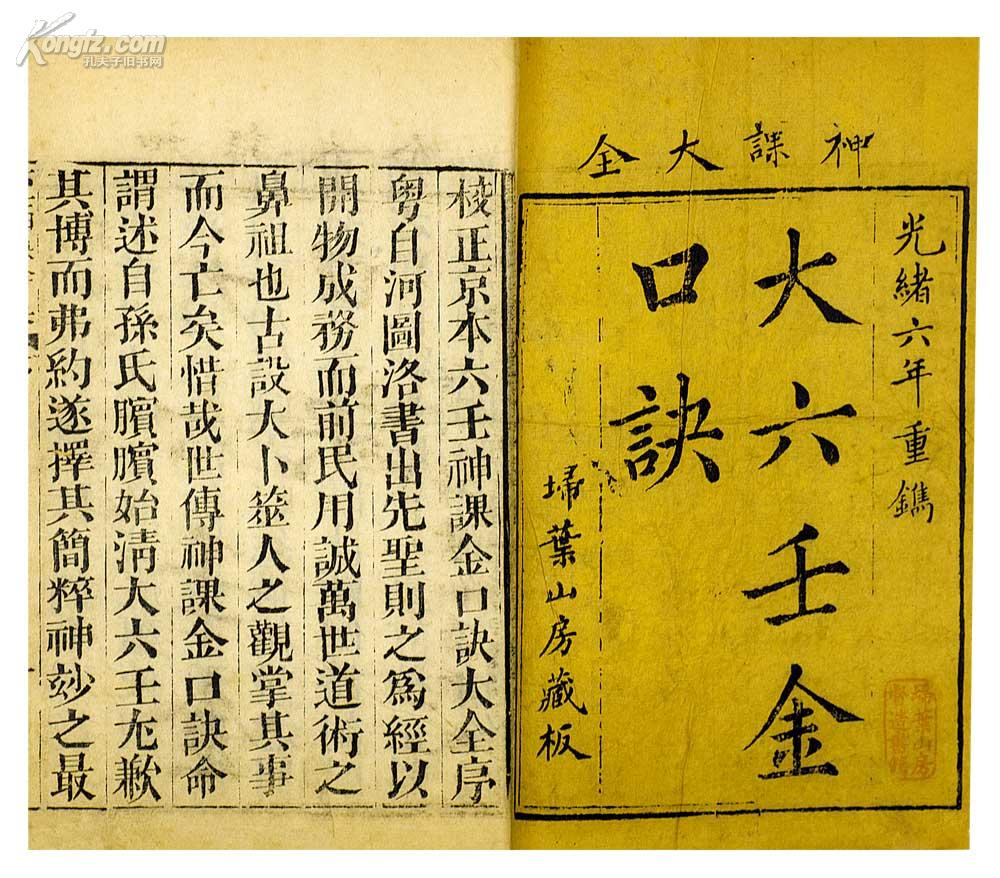 Kongfz.com
孔夫子旧书网
神課大全
光緒六年重鐫
大六壬金
口訣
埽葉山房藏板
校正京本六壬神課金口訣大全序
粵自河圖洛書出先聖則之為經以
開物成務而前民用誠萬世道術之
鼻祖也古設大卜簭人之觀掌其事
而今亡矣惜哉世傳神課金口訣命
謂述自孫氏臏臏始淸大六壬尢歉
其博而弗約遂擇其簡粹神玅之最